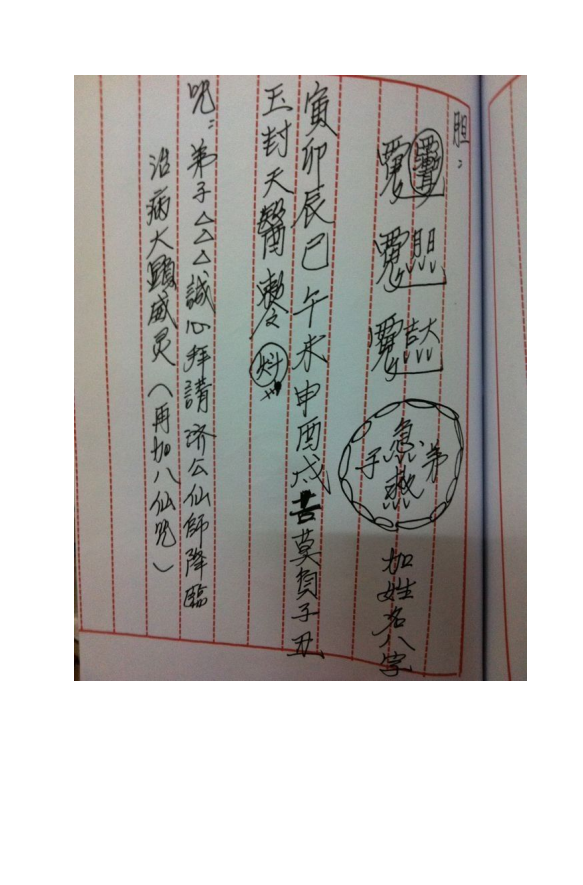 胆：
急救
弟子
加姓名八字
寅卯辰巳午未申酉戌苦莫負子丑
玉封天醫
咒：弟子△△△誠心拜請济公仙師降臨
治病大顯威灵（再加八仙咒）